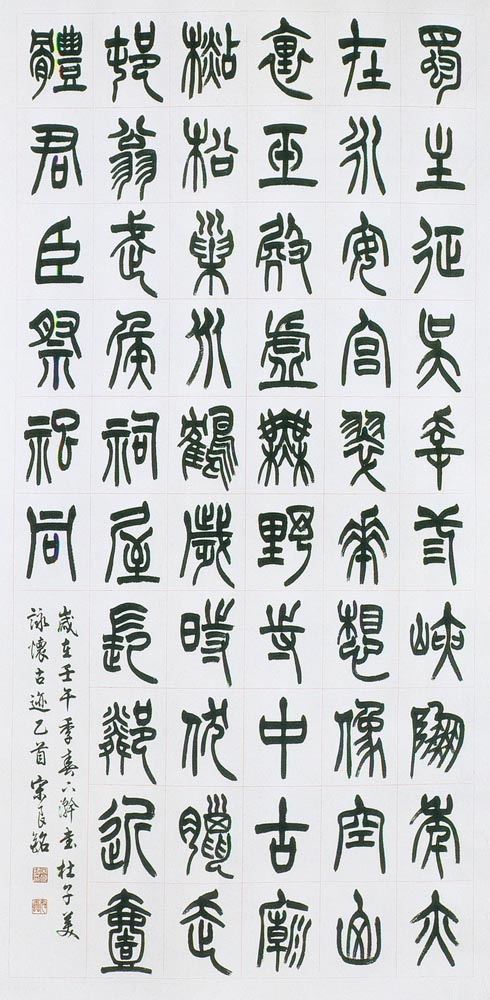 蜀主征吳幸三峽崩年亦
在永安宮翠華想像空山
裏玉殿虛無野寺中古廟
杉松巢水鶴歲時伏臘走
邨翁武侯祠屋長鄰近壹
體君臣祭祀同
歲在壬午季春瀚書杜子美
詠懷古迹乙首宋良銘